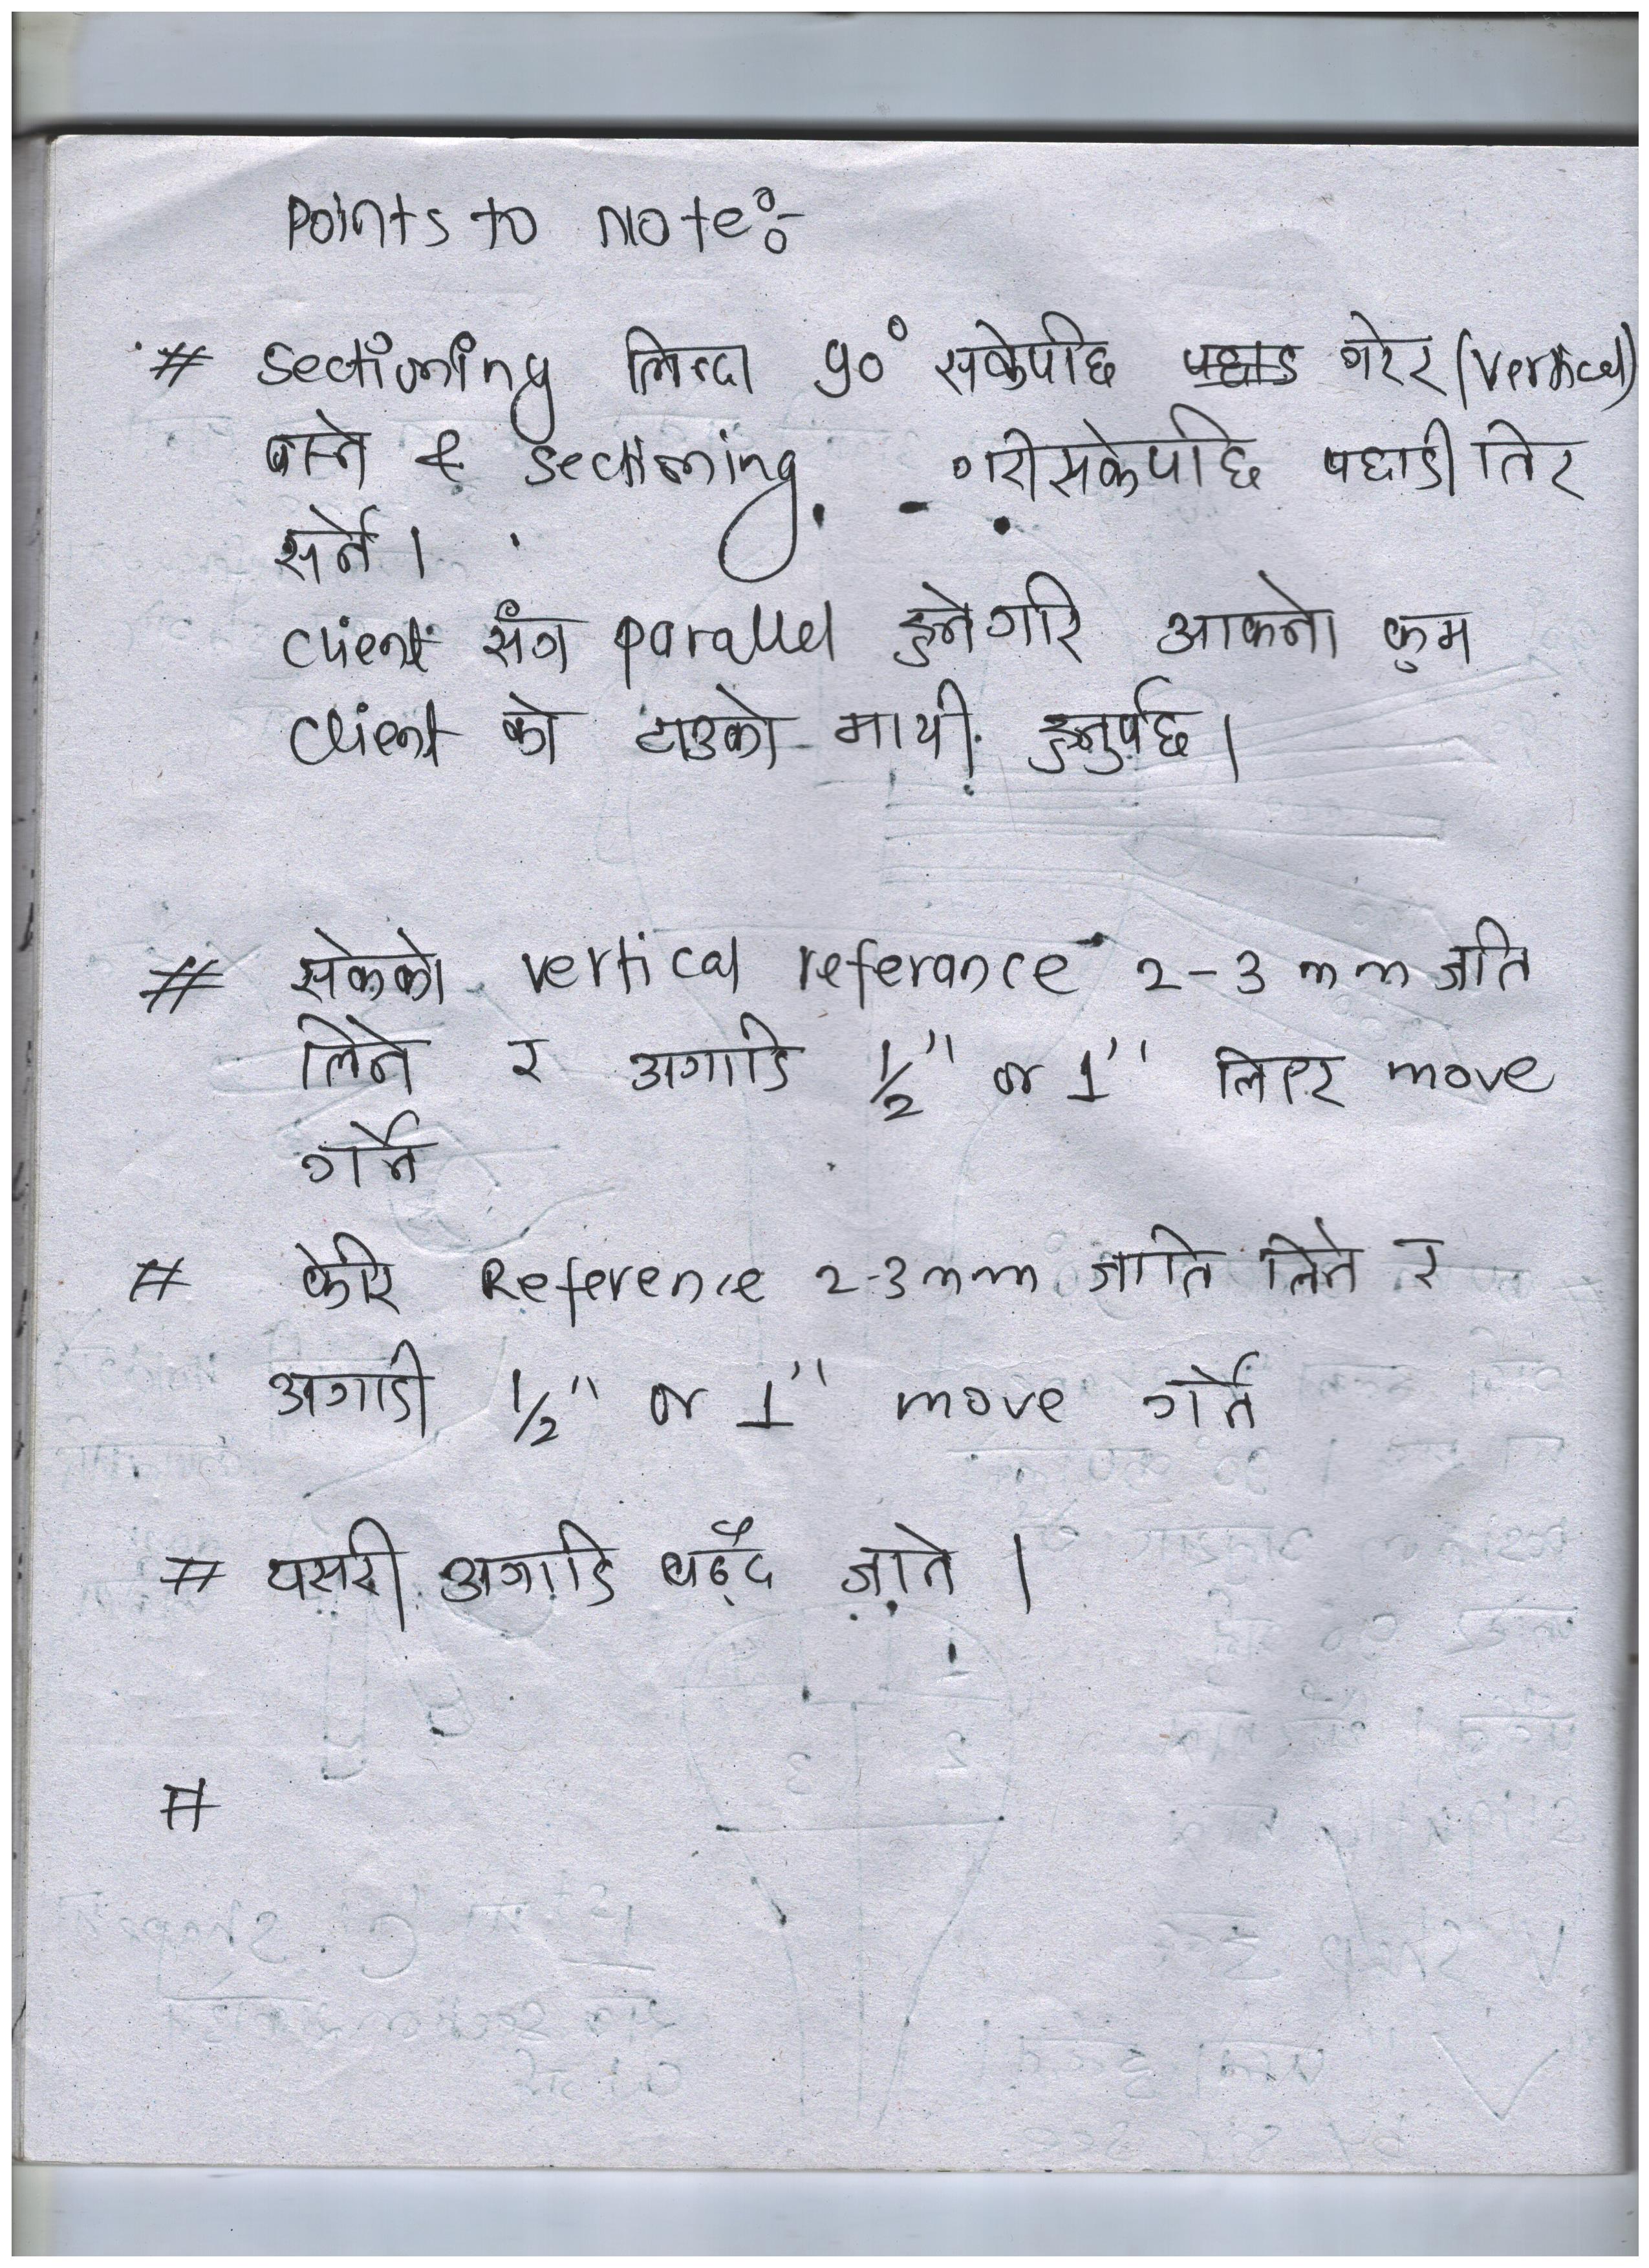 Points to Note:-
# Sectioning लिन्दा 90° सकेपछि गरेर (Vertical)
बस्ने & Sectioning गरीसकेपछि पछाडी तिर
सर्ने ।
Client सँग parallel हुनेगरि आफ्नो कुम
Client को टाउको माथी हुनुपर्छ ।
# सकेको vertical referance 2-3 mm जति
लिने र अगाडि 1/2" or 1" लिएर move
गर्ने
# फेरि Reference 2-3mm जाति लिने र
अगाडी 1/2" or 1" move गर्ने
# यसरी अगाडि बढ्दै जाने ।
#